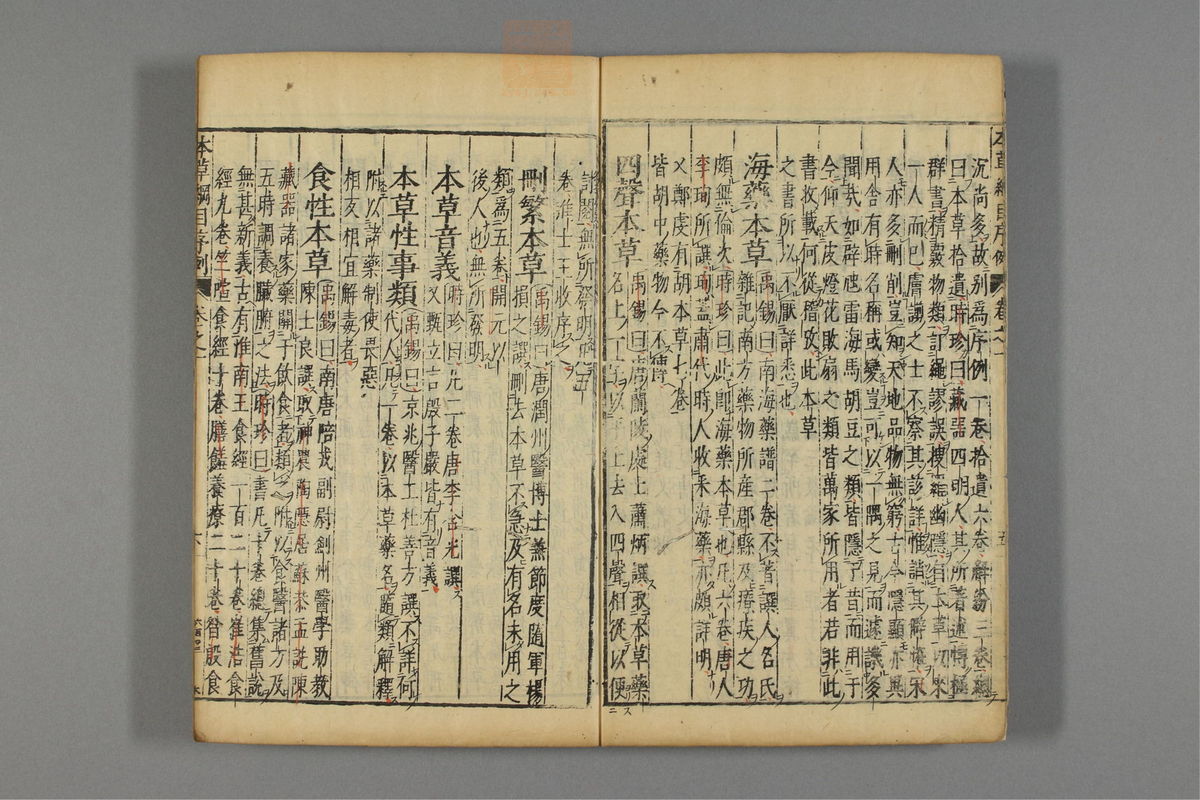 沉尚多故別爲序例一卷拾遺六卷解紛三卷總
曰本草拾遺時珍曰藏器四明人其所著述博極
群書精覈物類訂繩謬誤搜羅幽隱自本草以來
一人而已膚譾之士不察其該詳惟誚其僻怪宋
人亦多刪削豈知天地品物無窮古今隱顯亦異
用舍有時名稱或變豈可以一隅之見而遽譏多
聞哉如辟虺雷海馬胡豆之類皆隱于昔而用于
今仰天皮燈花敗扇之類皆萬家所用者若非此
書收載何從稽攷此本草
之書所以不厭詳悉也
海藥本草 禹錫曰南海藥譜二卷不著譔人名氏
雜記南方藥物所産郡縣及療疾之功
頗無倫次時珍曰此即海藥本草也凡六卷唐人
李珣所譔珣蓋肅代時人收采海藥亦頗詳明
又鄭虔有胡本草七卷
皆胡中藥物今不傳
四聲本草 禹錫曰唐蘭陵處士蕭炳譔取本草藥
名上一字以平上去入四聲相從以便
討閱無所發明凡五
卷進士王收序之
刪繁本草 禹錫曰唐潤州醫博士兼節度隨軍楊
損之譔刪去本草不急及有名未用之
類爲五卷開元以
後人也無所發明
本草音義 時珍曰凡二卷唐李含光譔
又甄立言殷子嚴皆有音義
本草性事類 禹錫曰京兆醫工杜善方譔不詳何
代人凡一卷以本草藥名隨類解釋
附以諸藥制使畏惡
相反相宜解毒者
食性本草 禹錫曰南唐陪戎副尉劍州醫學助教
陳士良譔取神農陶隱居蘇恭孟詵陳
藏器諸家藥關于飲食者類之附以食醫諸方及
五時調養臟腑之法時珍曰書凡十卷總集舊說
無甚新義古有淮南王食經一百二十卷崔浩食
經九卷竺暄食經十卷膳饈養療二十卷昝殷食
本草綱目序例 卷之一 六
本草綱目序例 卷之一 五